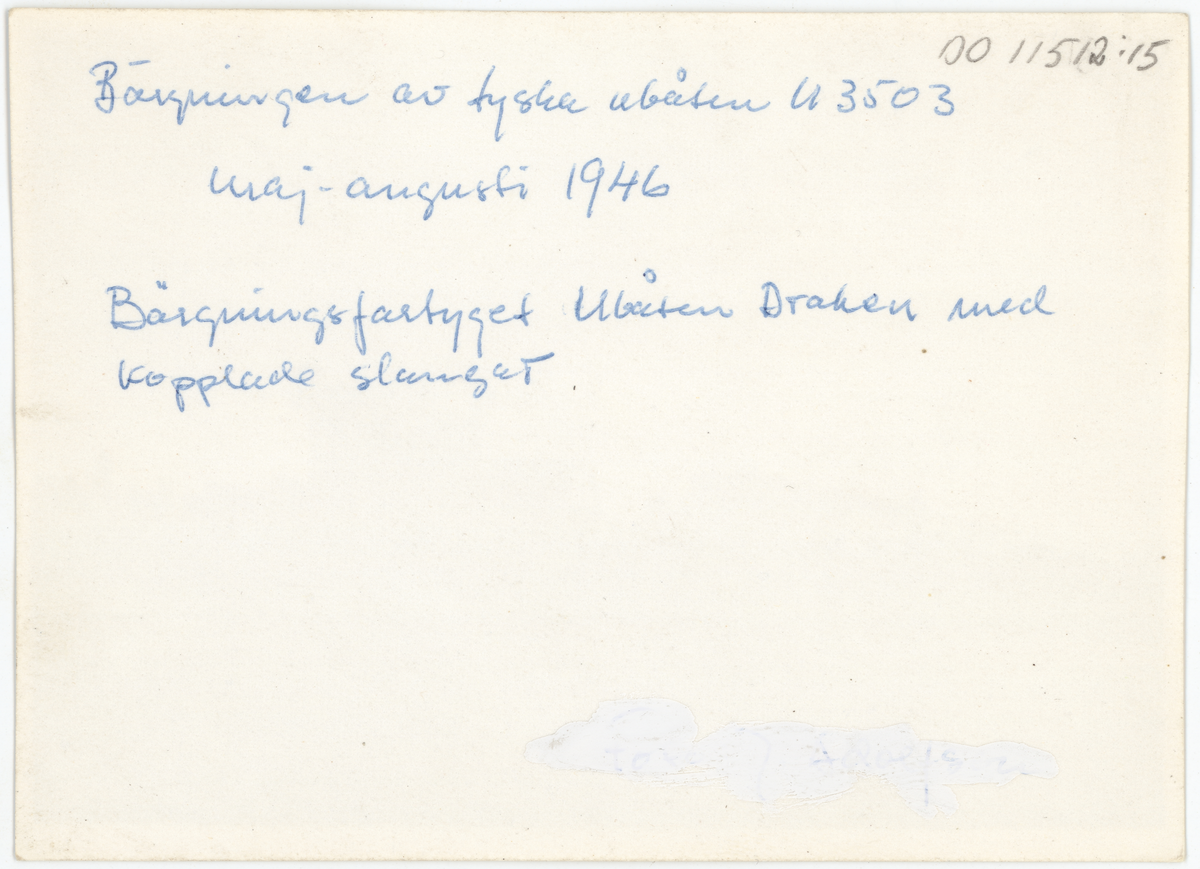 DO 11512:15
Bärgningen av tyska ubåten U 3503
maj-augusti 1946
Bärgningsfartyget Ubåten Draken med
kopplade slangar